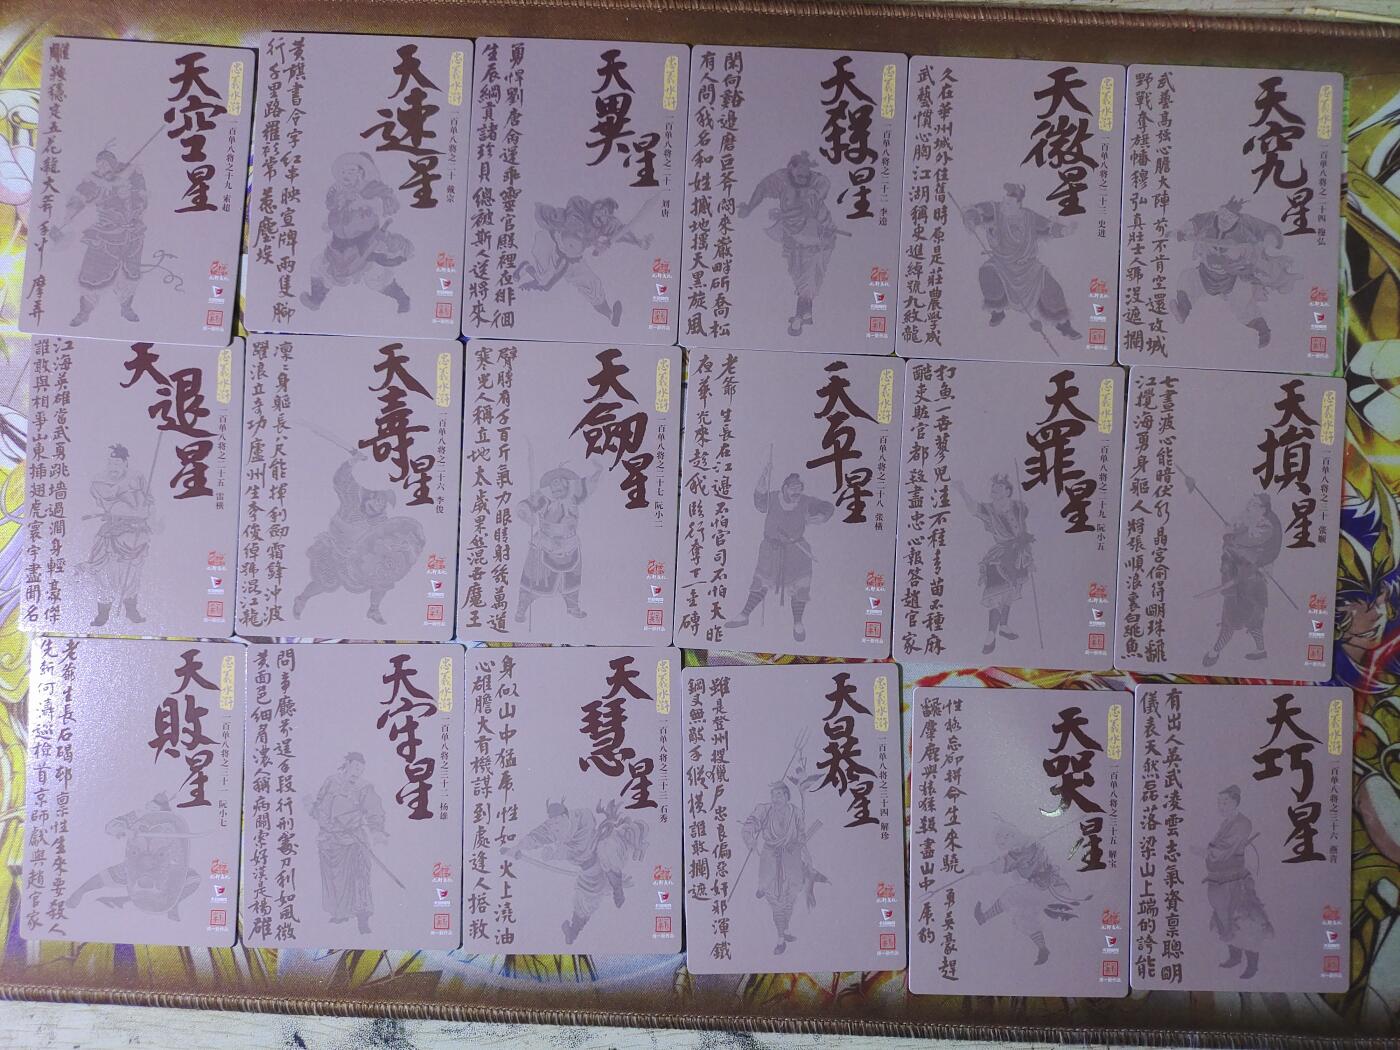 忠義水滸
天空星
一百单八将之十九 索超
忠義水滸
天速星
一百单八将之二十 戴宗
黃旗書令字紅串映宣牌兩隻腳
行千里路羅衫常惹塵埃
忠義水滸
天異星
一百单八将之二十一 刘唐
忠義水滸
天殺星
一百单八将之二十二 李逵
閑向谿邊磨巨斧悶來巖畔斫喬松
有人問我名和姓撼地搖天黑旋風
忠義水滸
天微星
一百单八将之二十三 史进
久在華州城外住舊時原是莊農學成
武藝慣心胸江湖稱史進綽號九紋龍
忠義水滸
天究星
一百单八将之二十四 穆弘
武藝高強心膽大陣前不肯空還攻城
野戰奪旗幡穆弘真壯士人號沒遮攔
忠義水滸
天退星
一百单八将之二十五 雷横
江海英雄當武勇跳墻過澗身輕豪傑
誰敢與相爭山東插翅虎寰宇盡聞名
忠義水滸
天壽星
一百单八将之二十六 李俊
凜凜身軀長八尺能揮利劍霜鋒沖波
躍浪立奇功廬州生李俊綽號混江龍
忠義水滸
天劍星
一百单八将之二十七 阮小二
臂膊有千百斤氣力眼睛射幾萬道
寒光人稱立地太歲果然混世魔王
忠義水滸
天平星
一百单八将之二十八 张横
老爺生長在江邊不怕官司不怕天昨
夜華光來趁我臨行奪下一金磚
忠義水滸
天罪星
一百单八将之二十九 阮小五
打魚一世蓼兒洼不種青苗不種麻
酷吏贓官都殺盡忠心報答趙官家
忠義水滸
天損星
一百单八将之三十 张顺
忠義水滸
天敗星
一百单八将之三十一 阮小七
老爺生長石碣邨稟性生來要殺人
先斬何濤巡檢首京師獻與趙官家
忠義水滸
天牢星
一百单八将之三十二 杨雄
忠義水滸
天慧星
一百单八将之三十三 石秀
身似山中猛虎性如火上澆油
心雄膽大有機謀到處逢人搭救
忠義水滸
天暴星
一百单八将之三十四 解珍
雖是登州搜獵戶忠良偏惡奸邪渾鐵
鋼叉無敵手縱橫誰敢攔遮
忠義水滸
天哭星
一百单八将之三十五 解宝
忠義水滸
天巧星
一百单八将之三十六 燕青
有出人英武凌雲志氣資稟聰明
儀表天然磊落梁山上端的誇能